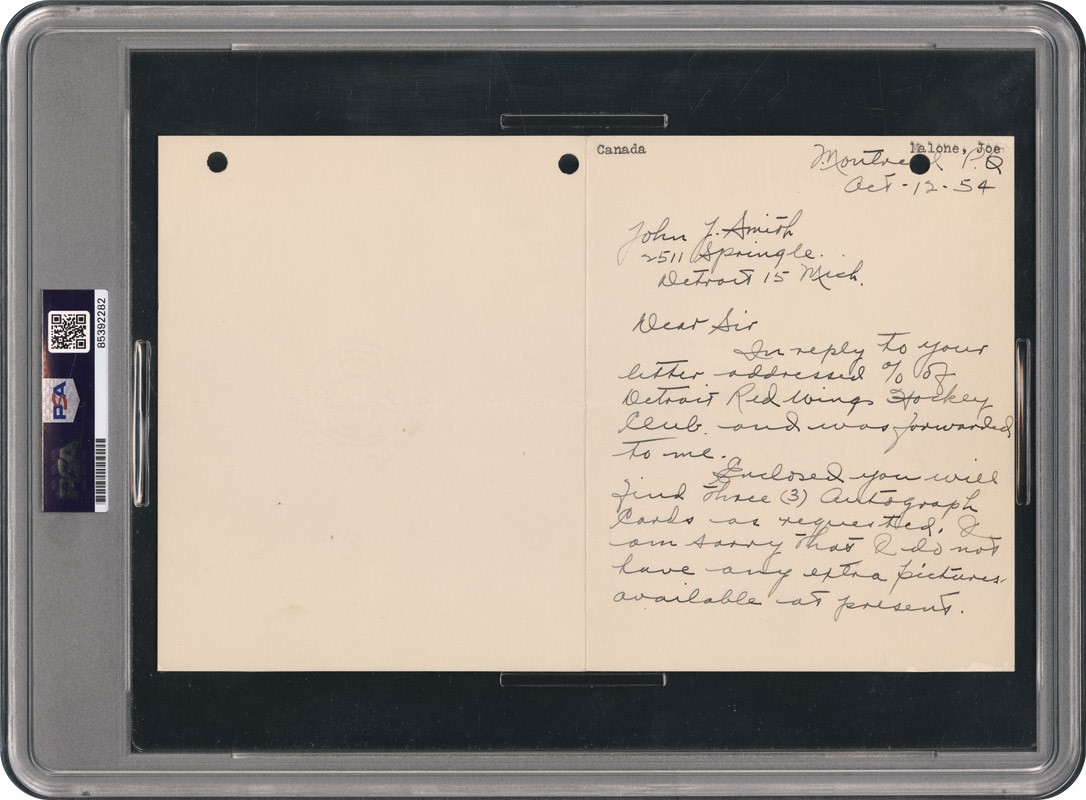 Canada
Malone, Joe
Montreal P.Q
Oct-12-54
John J. Smith
2511 Springle.
Detroit 15 Mich.
Dear Sir
In reply to your
letter addressed % of
Detroit Red Wings Hockey
Club. and was forwarded
to me.
Enclosed you will
find three (3) Autograph
Cards as requested. I
am sorry that I do not
have any extra pictures
available at present.
PSA
85392282
PSA